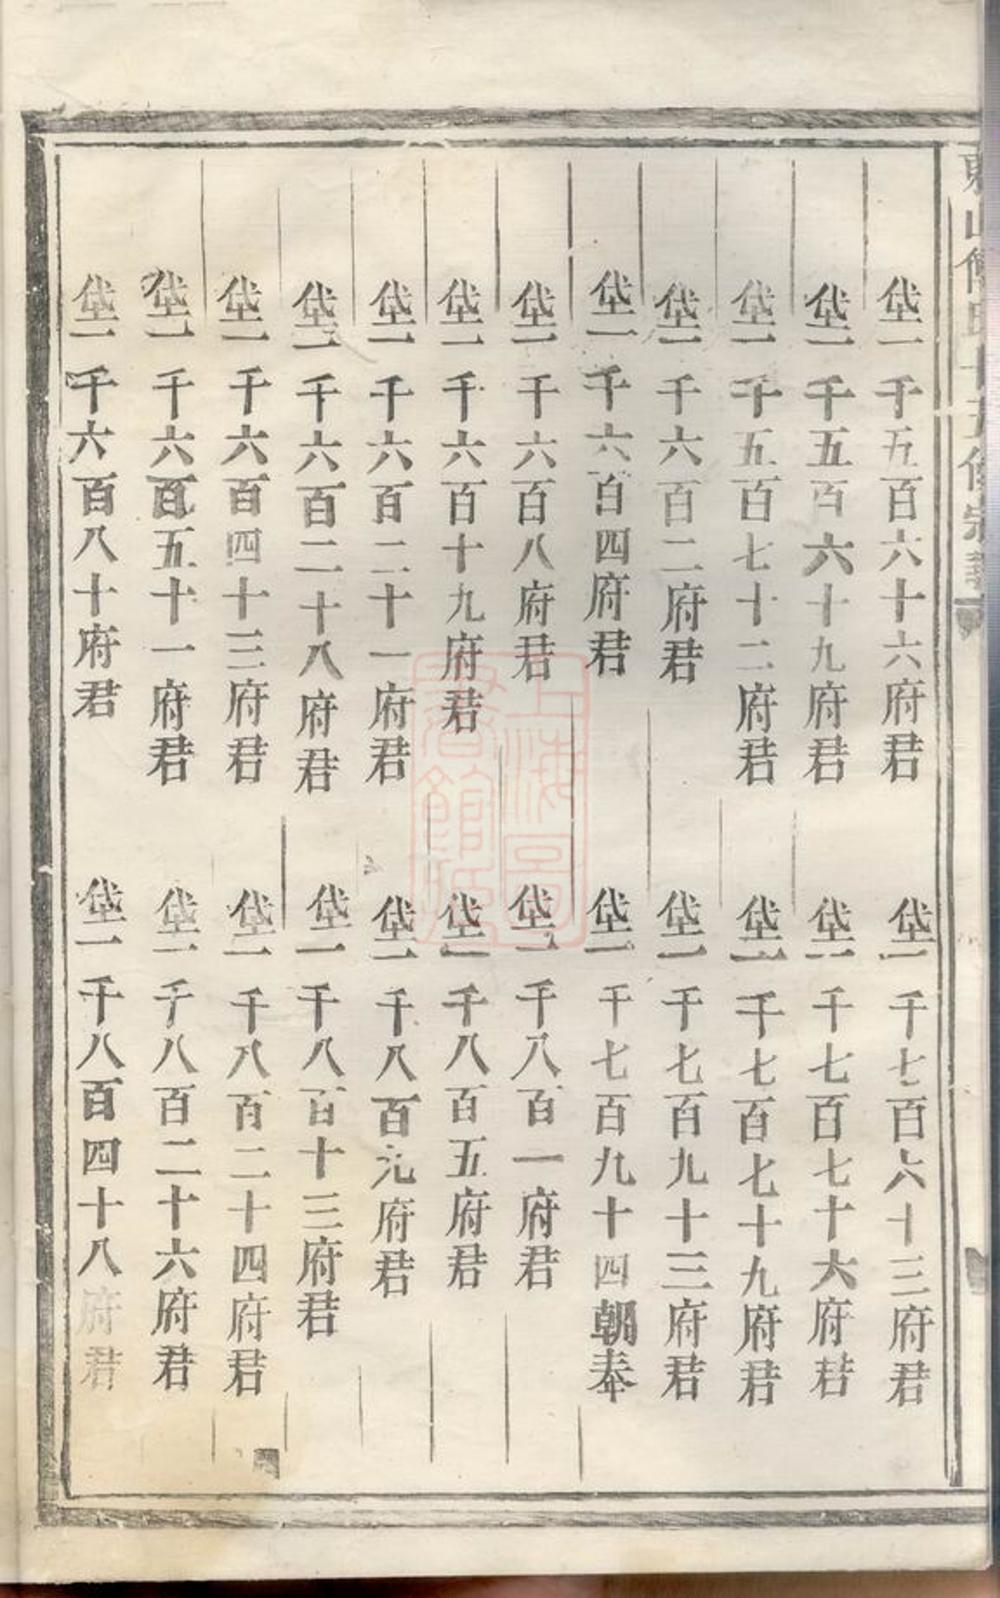 東山傅氏十五修宗譜
垡一千五百六十六府君
垡一千五百六十九府君
垡一千五百七十二府君
垡一千六百二府君
垡一千六百四府君
垡一千六百八府君
垡一千六百十九府君
垡一千六百二十一府君
垡一千六百二十八府君
垡一千六百四十三府君
垡一千六百五十一府君
垡一千六百八十府君
垡一千七百六十三府君
垡一千七百七十六府君
垡一千七百七十九府君
垡一千七百九十三府君
垡一千七百九十四朝奉
垡一千八百一府君
垡一千八百五府君
垡一千八百九府君
垡一千八百十三府君
垡一千八百二十四府君
垡一千八百二十六府君
垡一千八百四十八府君
上海圖書館藏